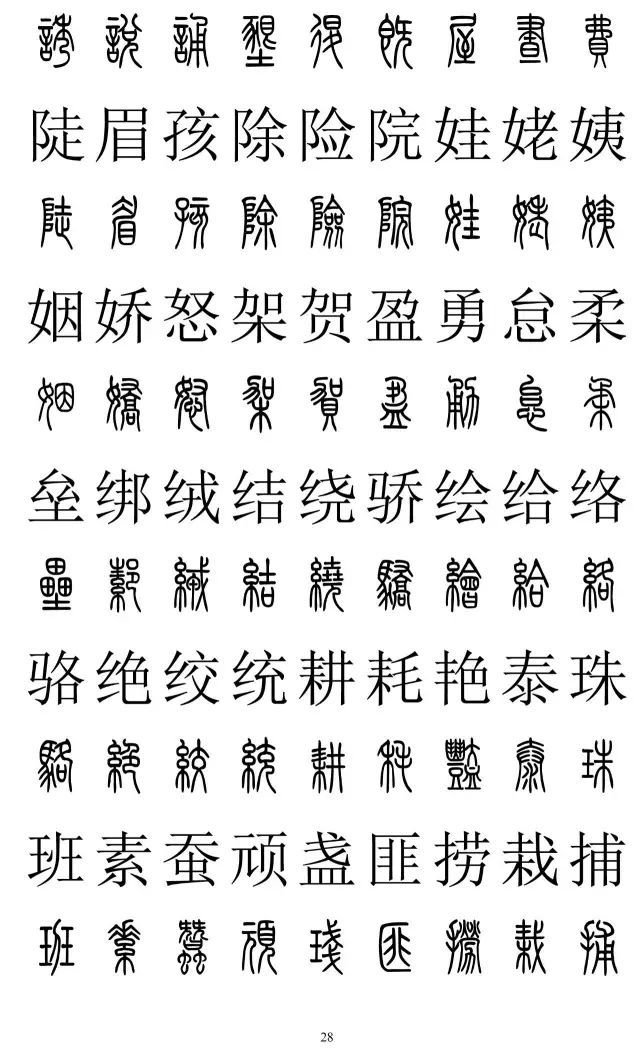 誇說誦墾㝵既屋晝費
陡眉孩除险院娃姥姨
陡眉孩除險院娃姥姨
姻娇怒架贺盈勇怠柔
姻嬌怒架賀盈勈怠柔
垒绑绒结绕骄绘给络
壘綁絨結繞驕繪給絡
骆绝绞统耕耗艳泰珠
駱絕絞統耕秏豔泰珠
班素蚕顽盏匪捞栽捕
班素蠶頑琖匪撈栽捕
28